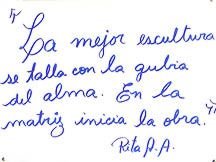 "La mejor escultura
se talla con la gubia
del alma. En la
matriz inicia la obra."
Rita A.A.